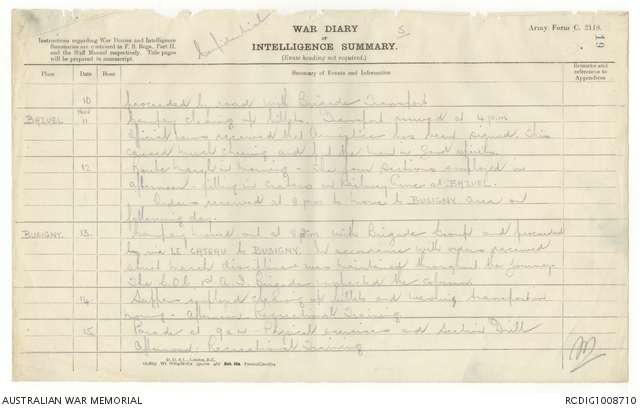 WAR DIARY
or
INTELLIGENCE SUMMARY.
(Erase heading not required.)
Army Form C. 2118.
Instructions regarding War Diaries and Intelligence
Summaries are contained in F. S. Regs., Part II.
and the Staff Manual respectively. Title pages
will be prepared in manuscript.
Confidential
5
19
Place Date Hour Summary of Events and Information Remarks and references to Appendices
10 proceeded by road with Brigade Transport
BAZUEL 11 Company cleaning up billets. Transport arrived at 4 p.m
Official news received that Armistice has been signed. This
caused much cheering and put the men in good spirits.
12 Route march in morning - the four sections employed in
afternoon filling in craters on Railway Line at BAZUEL.
Orders received at 8 pm to move to BUSIGNY area on
following day.
BUSIGNY. 13. Company moved out at with Brigade Group and proceeded
by via LE CATEAU to BUSIGNY. In accordance with orders received
strict march discipline was maintained throughout the journey
The G.O.C. Brigade inspected the column
14 Sappers employed cleaning up billets and
Afternoon Recreational Training
15 Parade at 9 a.m - Physical exercises and Section Drill
Afternoon: Recreational Training
AUSTRALIAN WAR MEMORIAL
RCDIG1008710